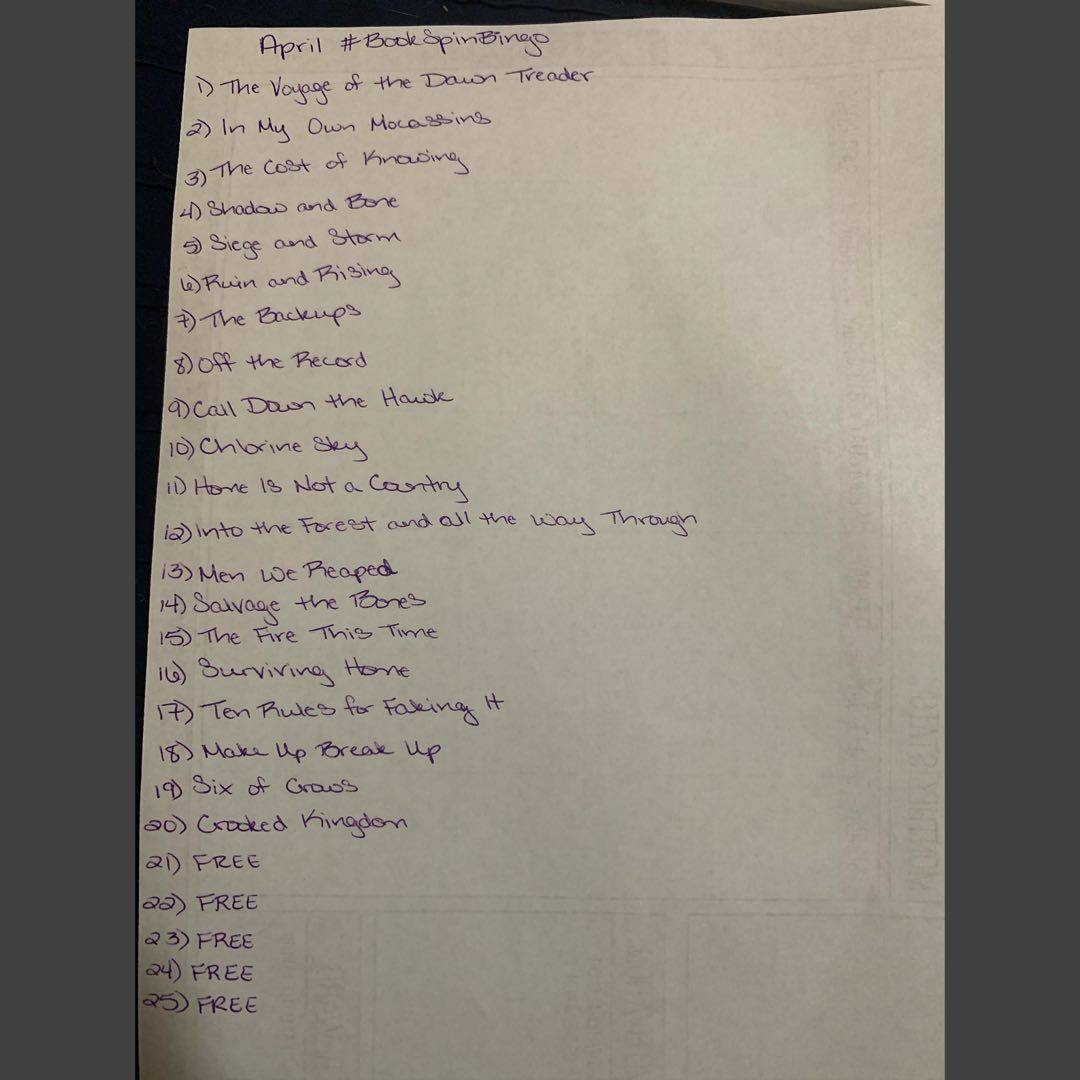 April #BookSpinBingo
1) The Voyage of the Dawn Treader
2) In My Own Mocassins
3) The Cost of Knowing
4) Shadow and Bone
5) Siege and Storm
6) Ruin and Rising
7) The Backups
8) Off the Record
9) Call Down the Hawk
10) Chlorine Sky
11) Home Is Not a Country
12) Into the Forest and all the way Through
13) Men We Reaped
14) Salvage the Bones
15) The Fire This Time
16) Surviving Home
17) Ten Rules for Faking It
18) Make Up Break Up
19) Six of Crows
20) Crooked Kingdom
21) FREE
22) FREE
23) FREE
24) FREE
25) FREE